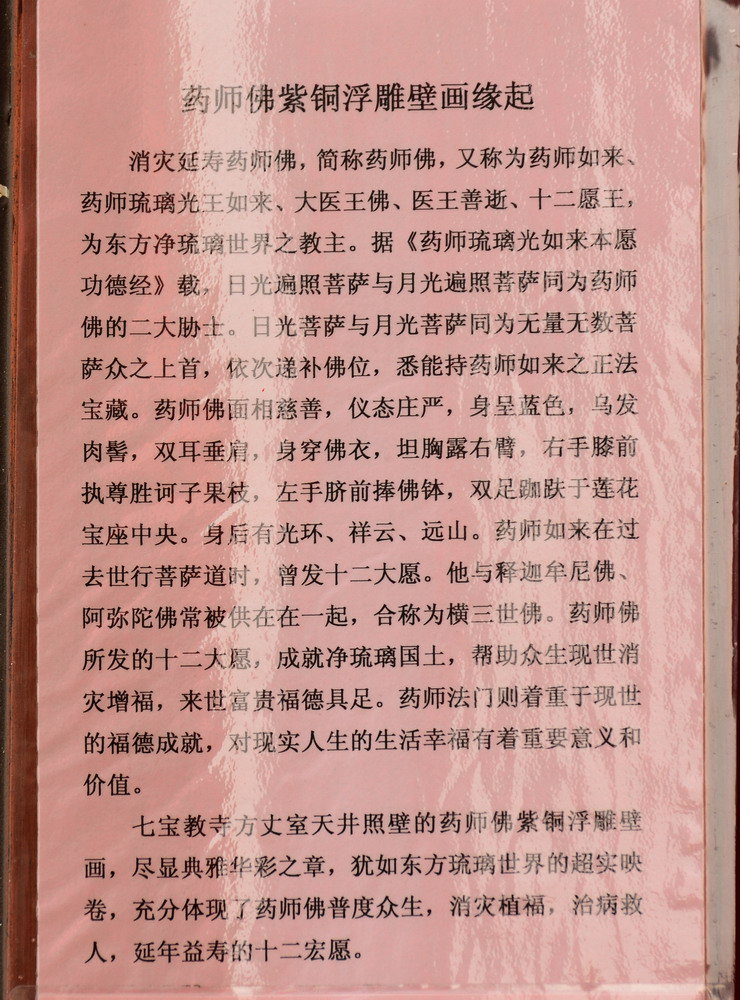 药师佛紫铜浮雕壁画缘起
消灾延寿药师佛，简称药师佛，又称为药师如来、
药师琉璃光王如来、大医王佛、医王善逝、十二愿王，
为东方净琉璃世界之教主。据《药师琉璃光如来本愿
功德经》载，日光遍照菩萨与月光遍照菩萨同为药师
佛的二大胁士。日光菩萨与月光菩萨同为无量无数菩
萨众之上首，依次递补佛位，悉能持药师如来之正法
宝藏。药师佛面相慈善，仪态庄严，身呈蓝色，乌发
肉髻，双耳垂肩，身穿佛衣，坦胸露右臂，右手膝前
执尊胜诃子果枝，左手脐前捧佛钵，双足跏趺于莲花
宝座中央。身后有光环、祥云、远山。药师如来在过
去世行菩萨道时，曾发十二大愿。他与释迦牟尼佛、
阿弥陀佛常被供在在一起，合称为横三世佛。药师佛
所发的十二大愿，成就净琉璃国土，帮助众生现世消
灾增福，来世富贵福德具足。药师法门则着重于现世
的福德成就，对现实人生的生活幸福有着重要意义和
价值。
七宝教寺方丈室天井照壁的药师佛紫铜浮雕壁
画，尽显典雅华彩之章，犹如东方琉璃世界的超实映
卷，充分体现了药师佛普度众生，消灾植福，治病救
人，延年益寿的十二宏愿。